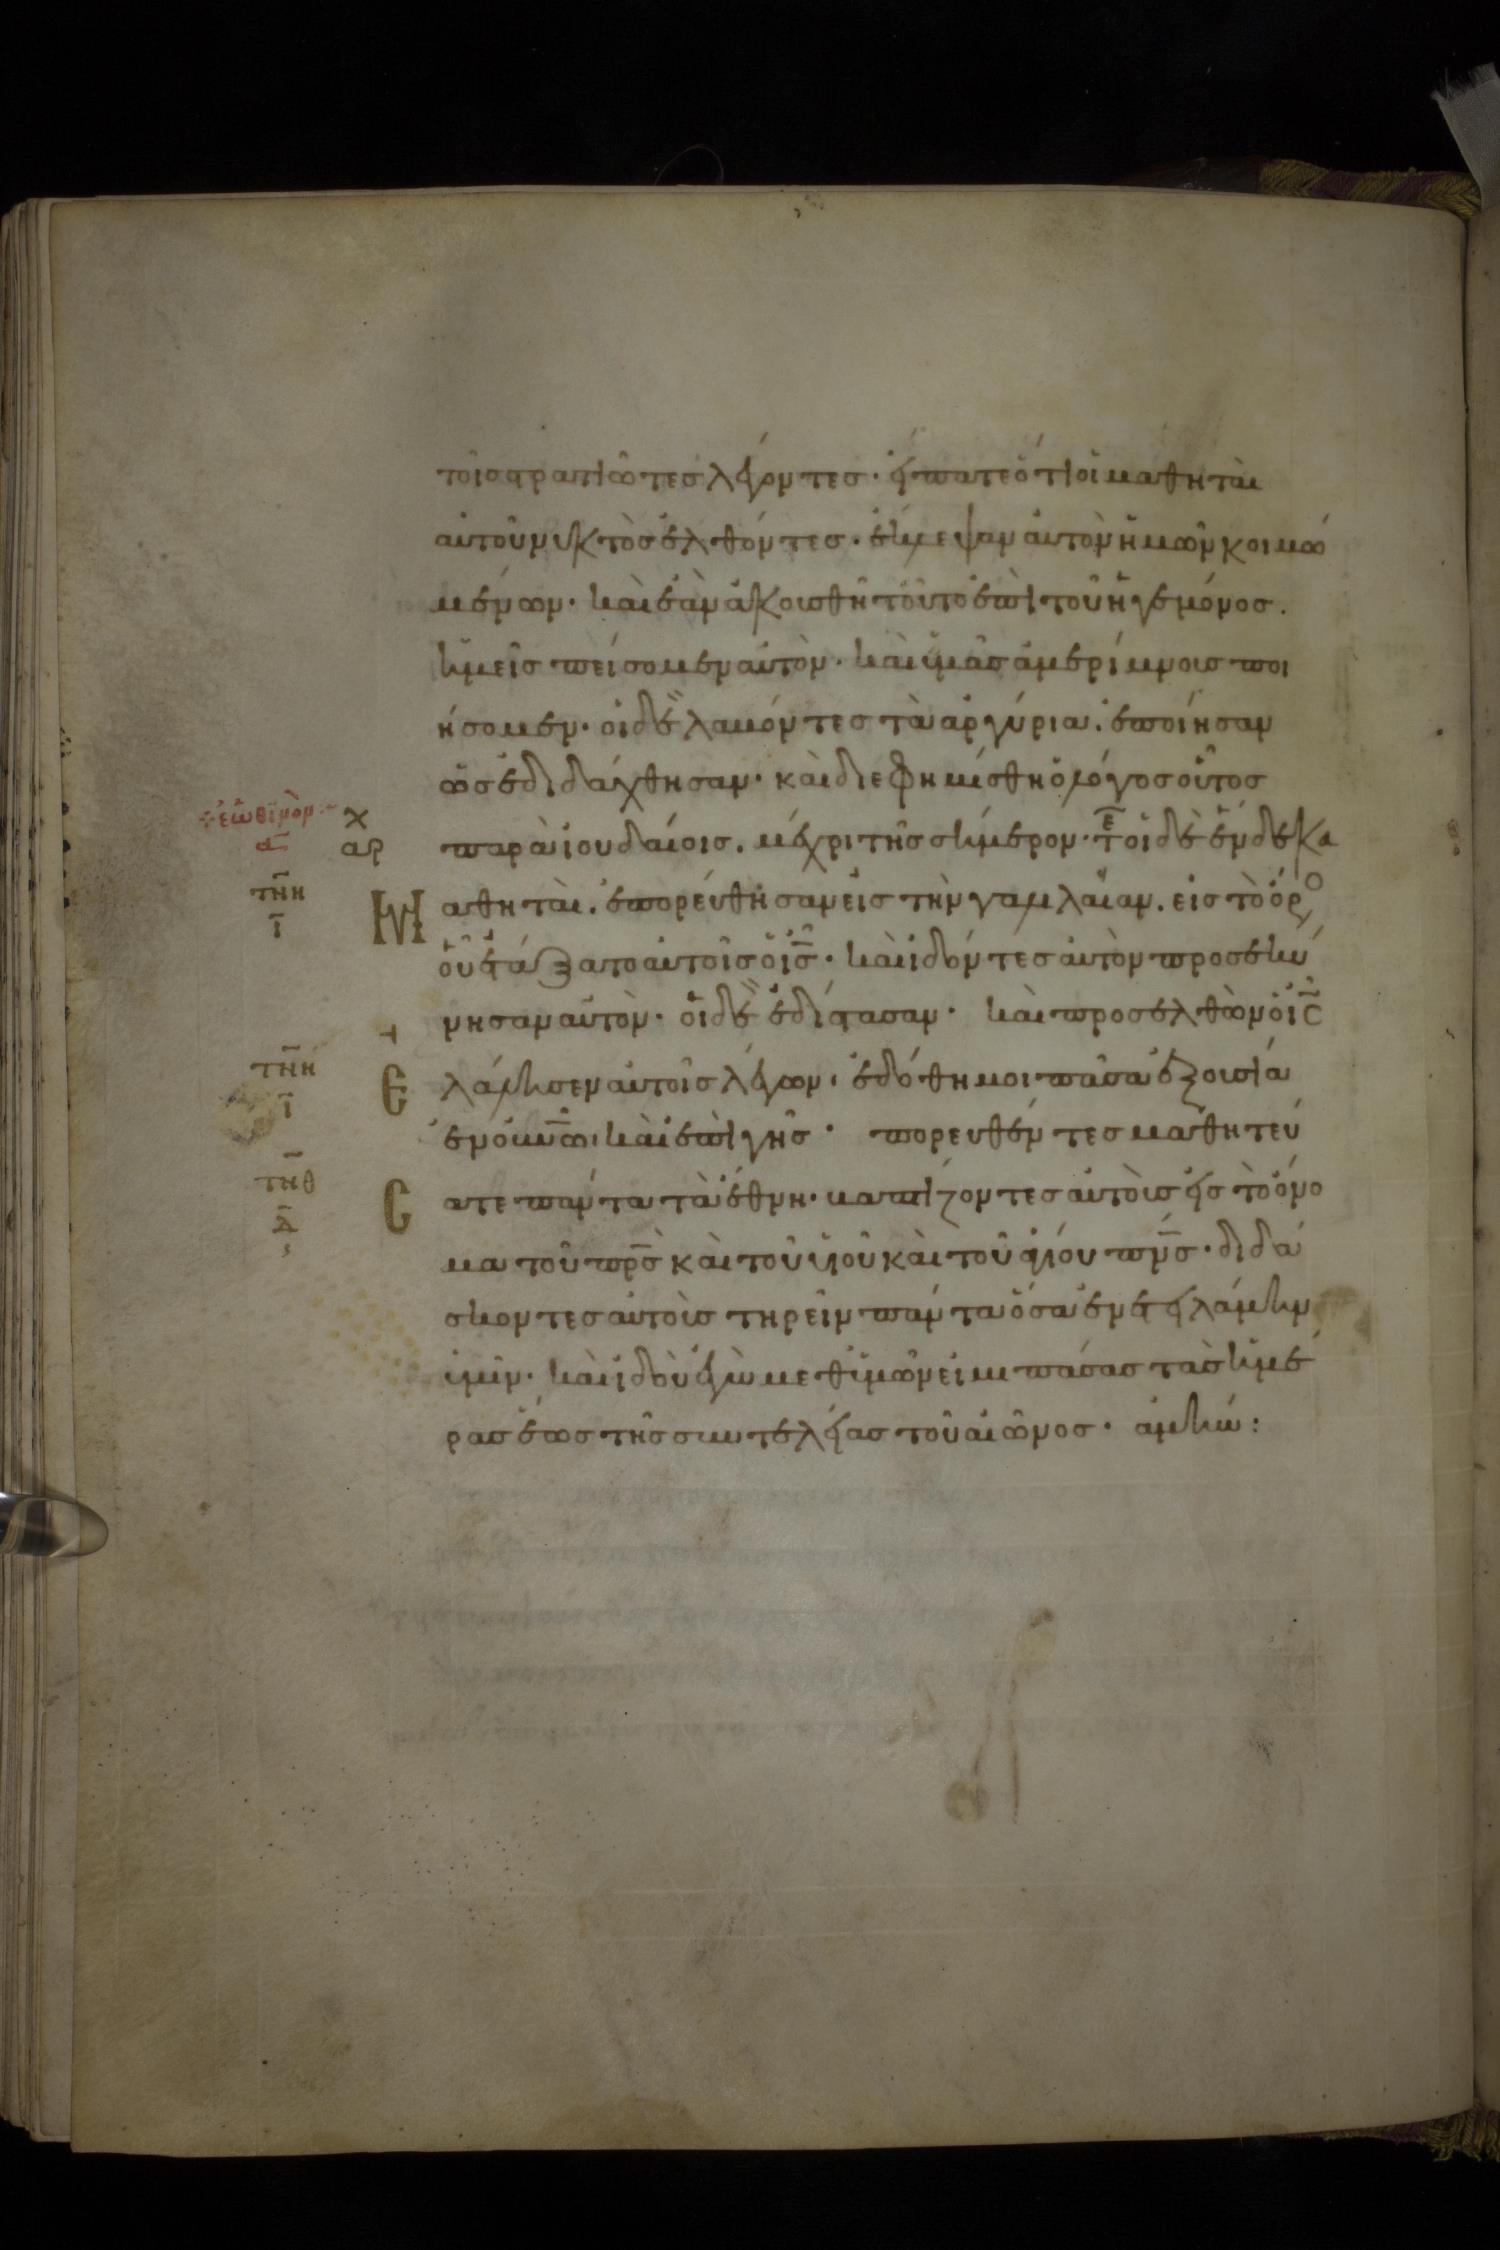 τοῖς στρατιώτες λέγοντες· εἴπατε ὅτι οἱ μαθηταὶ
αὐτοῦ νυκτὸς ἐλθόντες· ἔκλεψαν αὐτὸν ἡμῶν κοιμω
μένων· καὶ ἐὰν ἀκουσθῆ τοῦτο ἐπὶ τοῦ ἡγεμόνος.
ἡμεῖς πείσομεν αὐτὸν· καὶ ὑμᾶς ἀμερίμνους ποι
ήσομεν· οἱ δὲ λαβόντες τὰ ἀργύρια. ἐποίησαν
ὡς ἐδιδάχθησαν· καὶ διεφημίσθη ὁ λόγος οὗτος
ἑωθινὸν
α
χ
αρ
παρὰ ἰουδαίοις. μέχρι τῆς σήμερον· τε οἱ δὲ ἕνδεκα
τνη
ι
Μ αθηταὶ. ἐπορεύθησαν εἰς τὴν γαλιλαίαν. εἰς τὸ ὄρο
οὗ ἐτάξατο αὐτοῖς ὁ ις· καὶ ἰδόντες αὐτὸν προσεκύ
νησαν αὐτὸν· οἱ δὲ ἐδίστασαν· καὶ προσελθὼν ὁ ις
τνη
ι
Ε λάλησεν αὐτοῖς λέγων· ἐδόθη μοι πᾶσα ἐξουσία
ἐν οὐνῶ· καὶ ἐπὶ γῆς· πορευθέντες μαθητεύ
τνθ
Σ ατε πάντα τὰ ἔθνη· βαπτίζοντες αὐτοὺς εἰς τὸ ὄνο
μα τοῦ πρς καὶ τοῦ υἱοῦ καὶ τοῦ ἁγίου πνς· διδά
σκοντες αὐτοὺς τηρεῖν πάντα ὅσα ἐνετειλάμην
ὑμῖν· καὶ ἰδοὺ ἐγὼ μεθ ὑμῶν εἰμι πάσας τὰς ἡμέ
ρας ἕως τῆς συντελείας τοῦ αἰῶνος· ἀμήν: